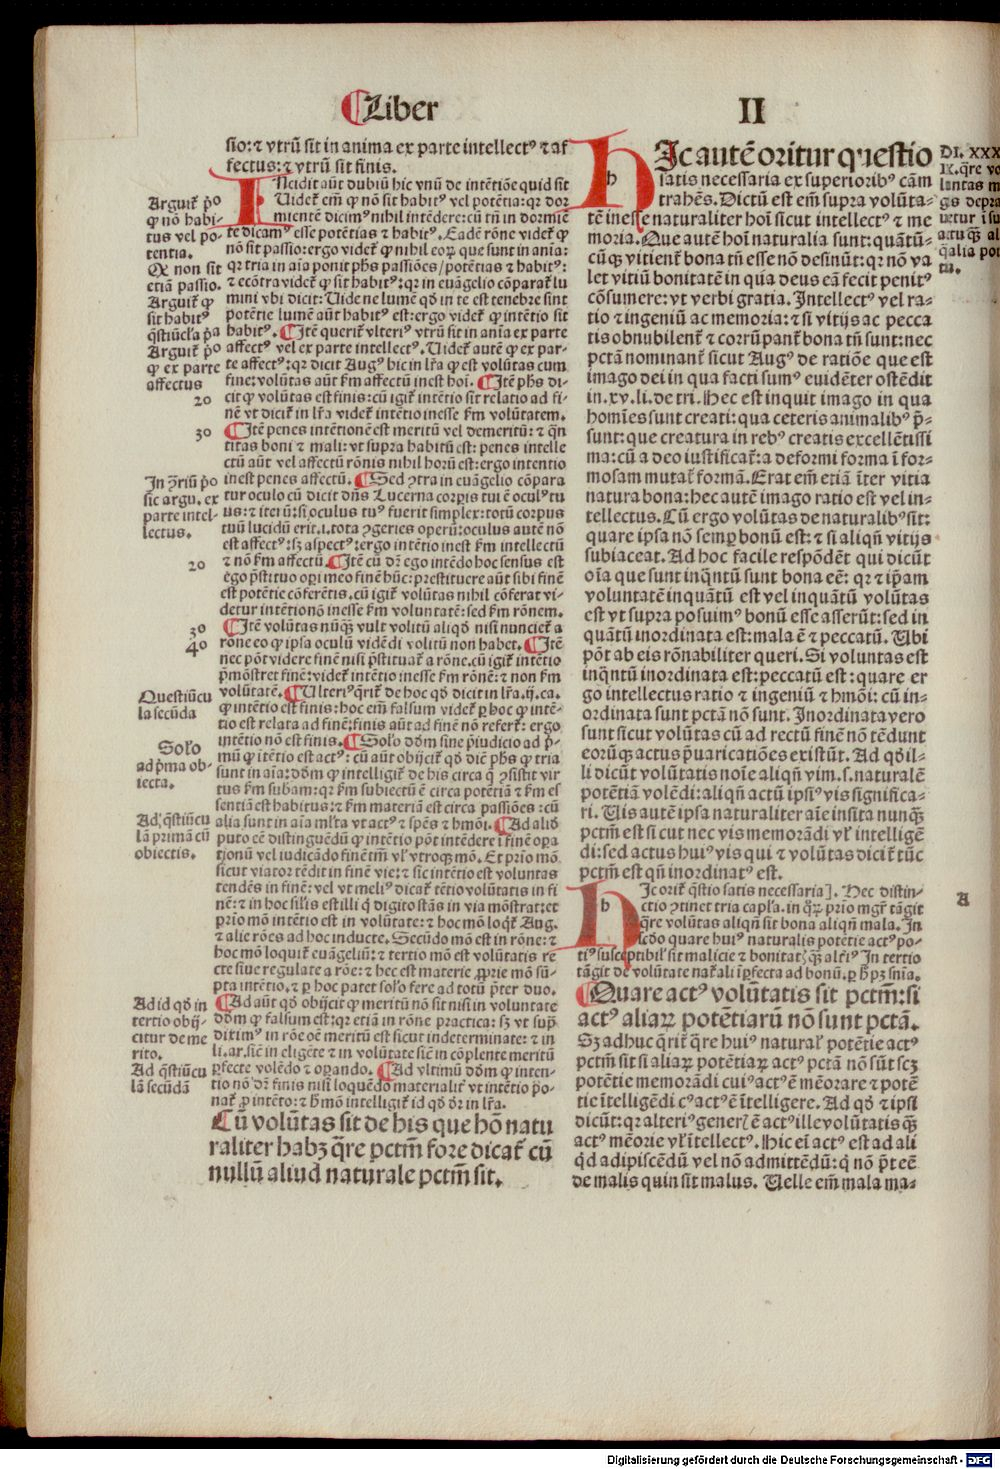 Liber
II
sio: ⁊ vtrū sit in anima ex parte intellectꝰ ⁊ af
fectus: ⁊ vtrū sit finis.
INcidit aūt dubiū hic vnū de intētiōe quid sit
Uidet̄ em̄ ꝙ nō sit habitꝰ vel potētia: qꝛ dor
mientē dicimꝰ nihil intēdere: cū tn̄ in dormiē
te dicamꝰ esse potētias ⁊ habitꝰ. Eadē rōne videt̄ ꝙ
nō sit passio: ergo videt̄ ꝙ nihil eoꝝ que sunt in aīa:
qꝛ tria in aīa ponit phs passiōes/ potētias ⁊ habitꝰ:
⁊ ecōtra videt̄ ꝙ sit habitꝰ: qꝛ in euāgelio cōparat̄ lu
mini vbi dicit: Uide ne lumē qd̄ in te est tenebre sint
potētie lumē aūt habitꝰ est: ergo videt̄ ꝙ intētio sit
habitꝰ. ¶ Itē querit̄ vlteriꝰ vtrū sit in anīa ex parte
affectꝰ vel ex parte intellectꝰ. Uidet̄ autē ꝙ ex par-
te affectꝰ: qꝛ dicit Augꝰ hic in lr̄a ꝙ est volūtas cum
fine: volūtas aūt ẜm affectū inest hoī. ¶ Itē phs di-
cit ꝙ volūtas est finis: cū igit̄ intētio sit relatio ad fi-
nē vt dicit̄ in lr̄a videt̄ intētio inesse ẜm volūtatem.
¶ Itē penes intētionē est meritū vel demeritū: ⁊ qn̄
titas boni ⁊ mali: vt supra habitū est: penes intelle
ctū aūt vel affectū rōnis nihil horū est: ergo intentio
inest penes affectū. ¶ Sed ꝯtra in euāgelio cōpara
tur oculo cū dicit dn̄s Lucerna corꝑis tui ē oculꝰ tu
us: ⁊ iterū: si oculus tuꝰ fuerit simplex: totū corpus
tuū lucidū erit. i. tota ꝯgeries operū: oculus autē nō
est affectꝰ: sꝫ aspectꝰ: ergo intētio inest ẜm intellectū
⁊ nō ẜm affectū. ¶ Itē cū dr̄ ego intēdo hoc sensus est
ego p̄stituo oꝑi meo finē hūc: prestituere aūt sibi finē
est potētie cōferētis. cū igit̄ volūtas nihil cōferat vi-
detur intētionō inesse ẜm voluntatē: sed ẜm rōnem.
¶ Itē volūtas nūqꝫ vult volitū aliqd̄ nisi nunciet̄ a
rōne eo ꝙ ipsa oculū vidēdi volitū non habet. ¶ Itē
nec pōt videre finē nisi p̄stituat̄ a rōne. cū igit̄ intētio
p̄mōstret finē: videt̄ intētio inesse ẜm rōnē: ⁊ non ẜm
volūtatē. ¶ Ulteriꝰ q̄rit̄ de hoc qd̄ dicit in lr̄a. ij. ca.
ꝙ intētio est finis: hoc em̄ falsum videt̄ ꝑ hoc ꝙ intē-
tio est relata ad finē: finis aūt ad finē nō refert̄: ergo
intētio nō est finis. ¶ Solo dd̄m sine p̄iudicio ad p̄-
mū ꝙ ītētio est actꝰ: cū aūt obijcit̄ qd̄ diē phs ꝙ tria
sunt in aīa: dd̄m ꝙ intelligit̄ de his circa q̄ ꝯsistit vir
tus ẜm subam: qꝛ ẜm subiectū ē circa potētiā ⁊ ẜm es
sentiā est habitus: ⁊ ẜm materiā est circa passiōes: cū
alia sunt in aīa ml̄ta vt actꝰ ⁊ spēs ⁊ hm̄oi. ¶ Ad aliō
puto eē distinguēdū ꝙ intētio pōt intēdere ī finē oꝑa
tionū vel iudicādo finē tm̄ vl̄ vtroqꝫ mō. Et prīo mō
sicut viator tēdit in finē vie: ⁊ sic intētio est voluntas
tendēs in finē: vel vt meliꝰ dicat̄ tētio volūtatis in fi
nē: ⁊ in hoc sil̄is est illi q̄ digito stās in via mōstrat: et
prīo mō intētio est in volūtate: ⁊ hoc mō loqt̄ Aug.
⁊ alie rōes ad hoc inducte. Secūdo mō est in rōne: ⁊
hoc mō loquit̄ euāgeliū: ⁊ tertio mō est volūtatis re
cte siue regulate a rōe: ⁊ hec est materie ꝓprie mō sū-
pta intētio. ⁊ ꝑ hoc patet solo fere ad totū p̄ter duo.
¶ Ad aūt qd̄ obijcit̄ ꝙ meritū nō sit nisi in voluntate
dd̄m ꝙ falsum est: qꝛ etiā in rōne practica: sꝫ vt supͣ
diximꝰ in rōe oē meritū est sicut indeterminate: ⁊ in
li. ar. siēm in eligēte ⁊ in volūtate siēm in cōplente meritū
ꝑfecte volēdo ⁊ oꝑando. ¶ Ad vltimū dd̄m ꝙ inten-
tio nō dr̄ finis nisi loquēdo materialit̄ vt intētio p̄o-
nat̄ ꝓ intēto: ⁊ hͦ mō intelligit̄ id qd̄ dr̄ in lr̄a.
Cū volūtas sit de his que hō natu
raliter habꝫ q̄re pctm̄ fore dicat̄ cū
nullū aliud naturale pctm̄ sit.
Arguit̄ p̄o
ꝙ nō habi-
tus vel po-
tentia.
Qꝛ non sit
etiā passio.
Arguit̄ ꝙ
sit habitꝰ
q̄stiūcl̄a p̄a
Arguit̄ p̄o
ꝙ ex parte
affectus
20
30
In ꝯ̄riū p̄o
sic argu. ex
parte intel-
lectus.
20
30
40
Questiūcu
la secūda
Solo
ad p̄ma ob-
iecta.
Ad q̄stiūcu
lā primā cū
obiectis.
Ad id qd̄ in
tertio obij-
citur de me
rito.
Ad q̄stiūcu
lā secūdā
h
HIc autē oritur questio
satis necessaria ex superioribꝰ cām
trahēs. Dictū est em̄ supra volūta-
tē inesse naturaliter hoī sicut intellectꝰ ⁊ me
moria. Que autē hoī naturalia sunt: quātū-
cūqꝫ vitient̄ bona tn̄ esse nō desinūt: qꝛ nō va
let vitiū bonitatē in qͣ a deus eā fecit penitꝰ
cōsumere: vt verbi gratia. Intellectꝰ vel ra-
tio ⁊ ingeniū ac memoria: ⁊ si vitijs ac pecca
tis obnubilent̄ ⁊ corrūpant̄ bona tn̄ sunt: nec
pctā nominant̄ sicut Augꝰ de ratiōe que est
imago dei in qua facti sumꝰ euidēter ostēdit
in. xv. li. de tri. Hec est inquit imago in qua
homīes sunt creati: qua ceteris animalibꝰ p̄-
sunt: que creatura in rebꝰ creatis excellētissi
ma: cū a deo iustificat̄: a deformi forma ī for-
mosam mutat̄ formā. Erat em̄ etiā īter vitia
natura bona: hec autē imago ratio est vel in-
tellectus. Cū ergo volūtas de naturalibꝰ sit:
quare ipsa nō semꝑ bonū est: ⁊ si aliqn̄ vitijs
subiaceat. Ad hoc facile respōdēt qui dicūt
oīa que sunt inqͣntū sunt bona eē: qꝛ ⁊ ip̄am
voluntatē inquātū est vel inquātū volūtas
est vt supra posuimꝰ bonū esse asserūt: sed in
quātū inordinata est: mala ē ⁊ peccatū. Ubi
pōt ab eis rōnabiliter queri. Si voluntas est
inqͣntū inordinata est: peccatū est: quare er
go intellectus ratio ⁊ ingeniū ⁊ hm̄oi: cū in-
ordinata sunt pctā nō sunt. Inordinata vero
sunt sicut volūtas cū ad rectū finē nō tēdunt
eorūqꝫ actus p̄uaricatiōes existūt. Ad qd̄ il-
li dicūt volūtatis noīe aliqn̄ vim. s. naturalē
potētiā volēdi: aliqn̄ actū ipsiꝰ vis significa-
ri. Uis autē ipsa naturaliter aīe insita nunqꝫ
pctm̄ est sicut nec vis memorādi vl̄ intelligē
di: sed actus huiꝰ vis qui ⁊ volūtas dicit̄ tūc
pctm̄ est qn̄ inordinatꝰ est.
h
HIc orit̄ q̄stio satis necessaria]. Hec distin-
ctio ꝯtinet tria capl̄a. in qͦꝝ prīo mgr̄ tāgit
q̄re volūtas aliqn̄ sit bona aliqn̄ mala. In
scd̄o quare huiꝰ naturalis potētie actꝰ po-
tiꝰ susceptibil̄ sit malicie ⁊ bonitatꝭ qꝫ alt̓iꝰ In tertio
tāgit de volūtate nat̄ali īꝑfecta ad bonū. ꝑ hꝫ pꝫ sn̄ia.
¶ Quare actꝰ volūtatis sit pctm̄: si
actꝰ aliaꝝ potētiarū nō sunt pctā.
Sꝫ adhuc q̄rit̄ q̄re huiꝰ natural̄ potētie actꝰ
pctm̄ sit si aliaꝝ potētiaꝝ actꝰ pctā nō sūt scꝫ
potētie memorādi cuiꝰ actꝰ ē mēorare ⁊ potē
tie ītelligēdi cꝰ actꝰ ē ītelligere. Ad qd̄ ⁊ ipsi
dicūt: qꝛ alteriꝰ generꝭ ē actꝰ ille volūtatis qꝫ
actꝰ mēorie vl̄ ītellectꝰ. Hic eī actꝰ est ad ali
qd̄ adipiscēdū vel nō admittēdū: q̄ nō p̄t eē
de malis quin sit malus. Uelle em̄ mala ma-
DI. XXX
A
Digitalisierung gefördert durch die Deutsche Forschungsgemeinschaft - DFG